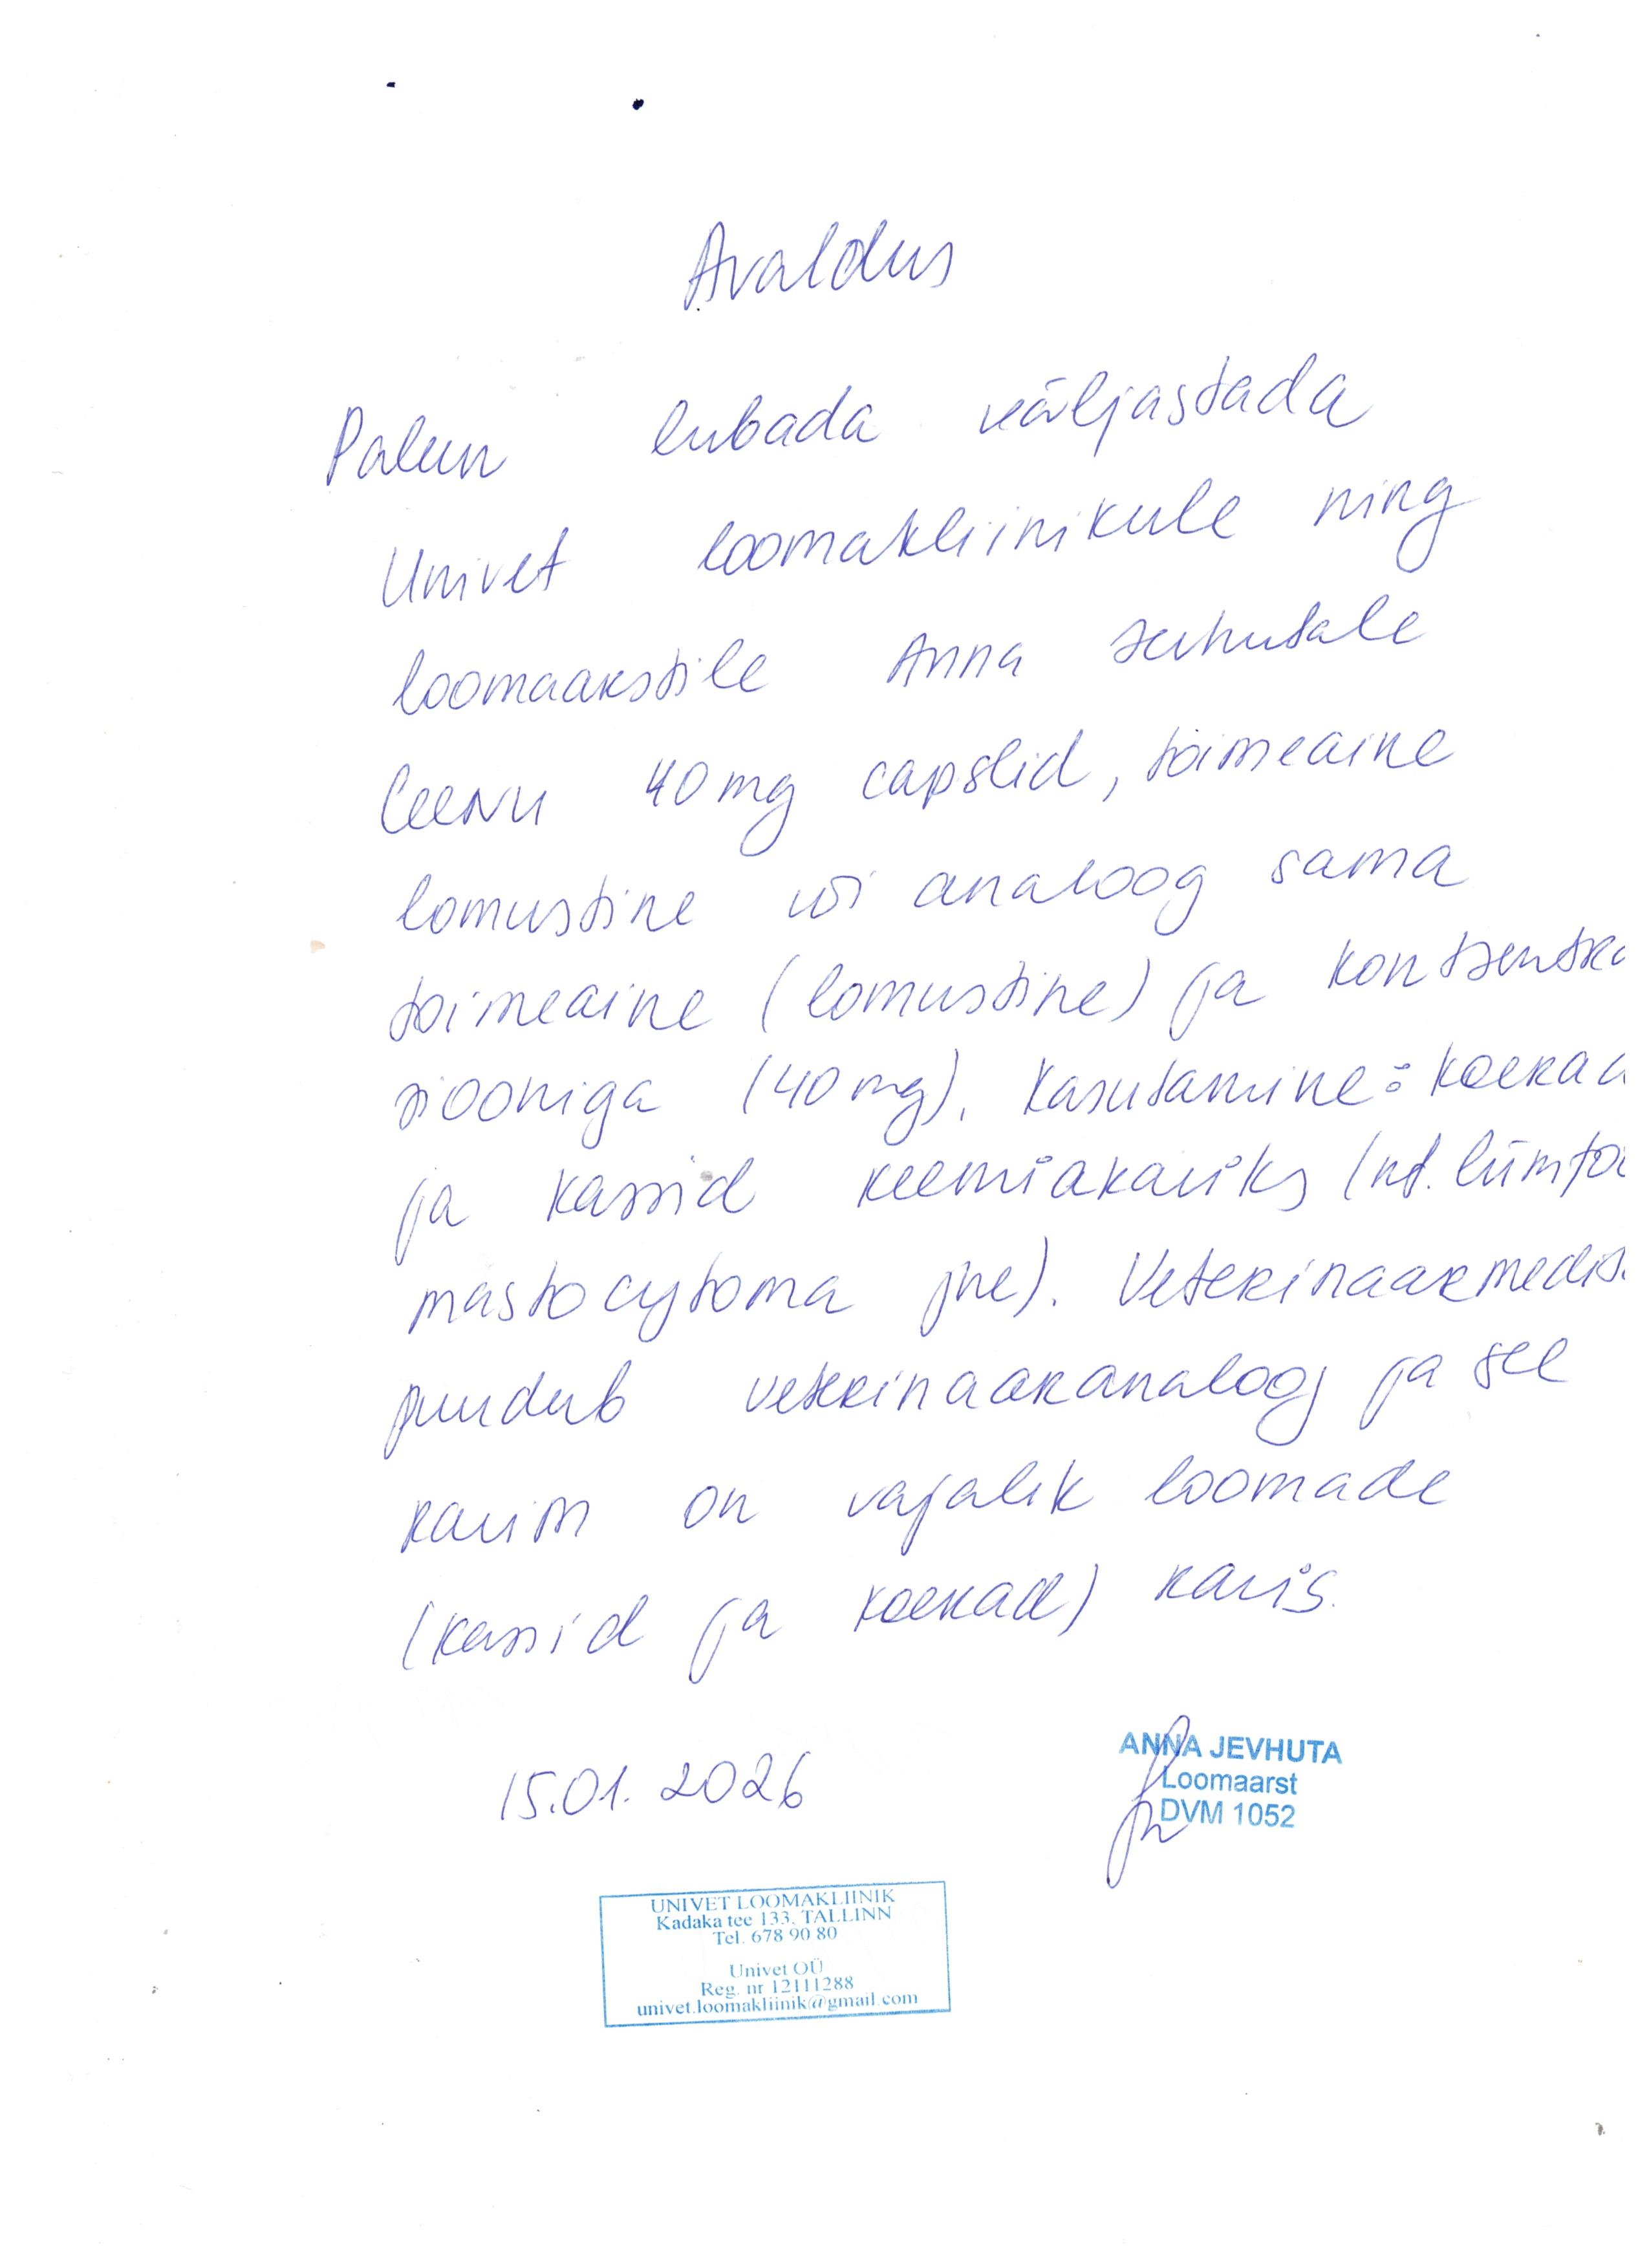 Avaldus
Palun lubada väljastada
Univet loomakliinikule ning
loomaarstile Anna Jevhutale
CeeNU 40mg capslid, toimeaine
lomustine või analoog sama
toimeaine (lomustine) ja kontsentra
siooniga (40mg). Kasutamine: koerad
ja kassid keemiaraviks (nt. lümfo
mastocytoma jne). Veterinaarmedits
puudub veterinaaranaloog ja see
ravim on vajalik loomade
(kassid ja koerad) ravis.
15.01.2026
ANNA JEVHUTA
Loomaarst
DVM 1052
UNIVET LOOMAKLIINIK
Kadaka tee 133, TALLINN
Tel. 678 90 80
Univet OÜ
Reg. nr 12111288
univet.loomakliinik@gmail.com